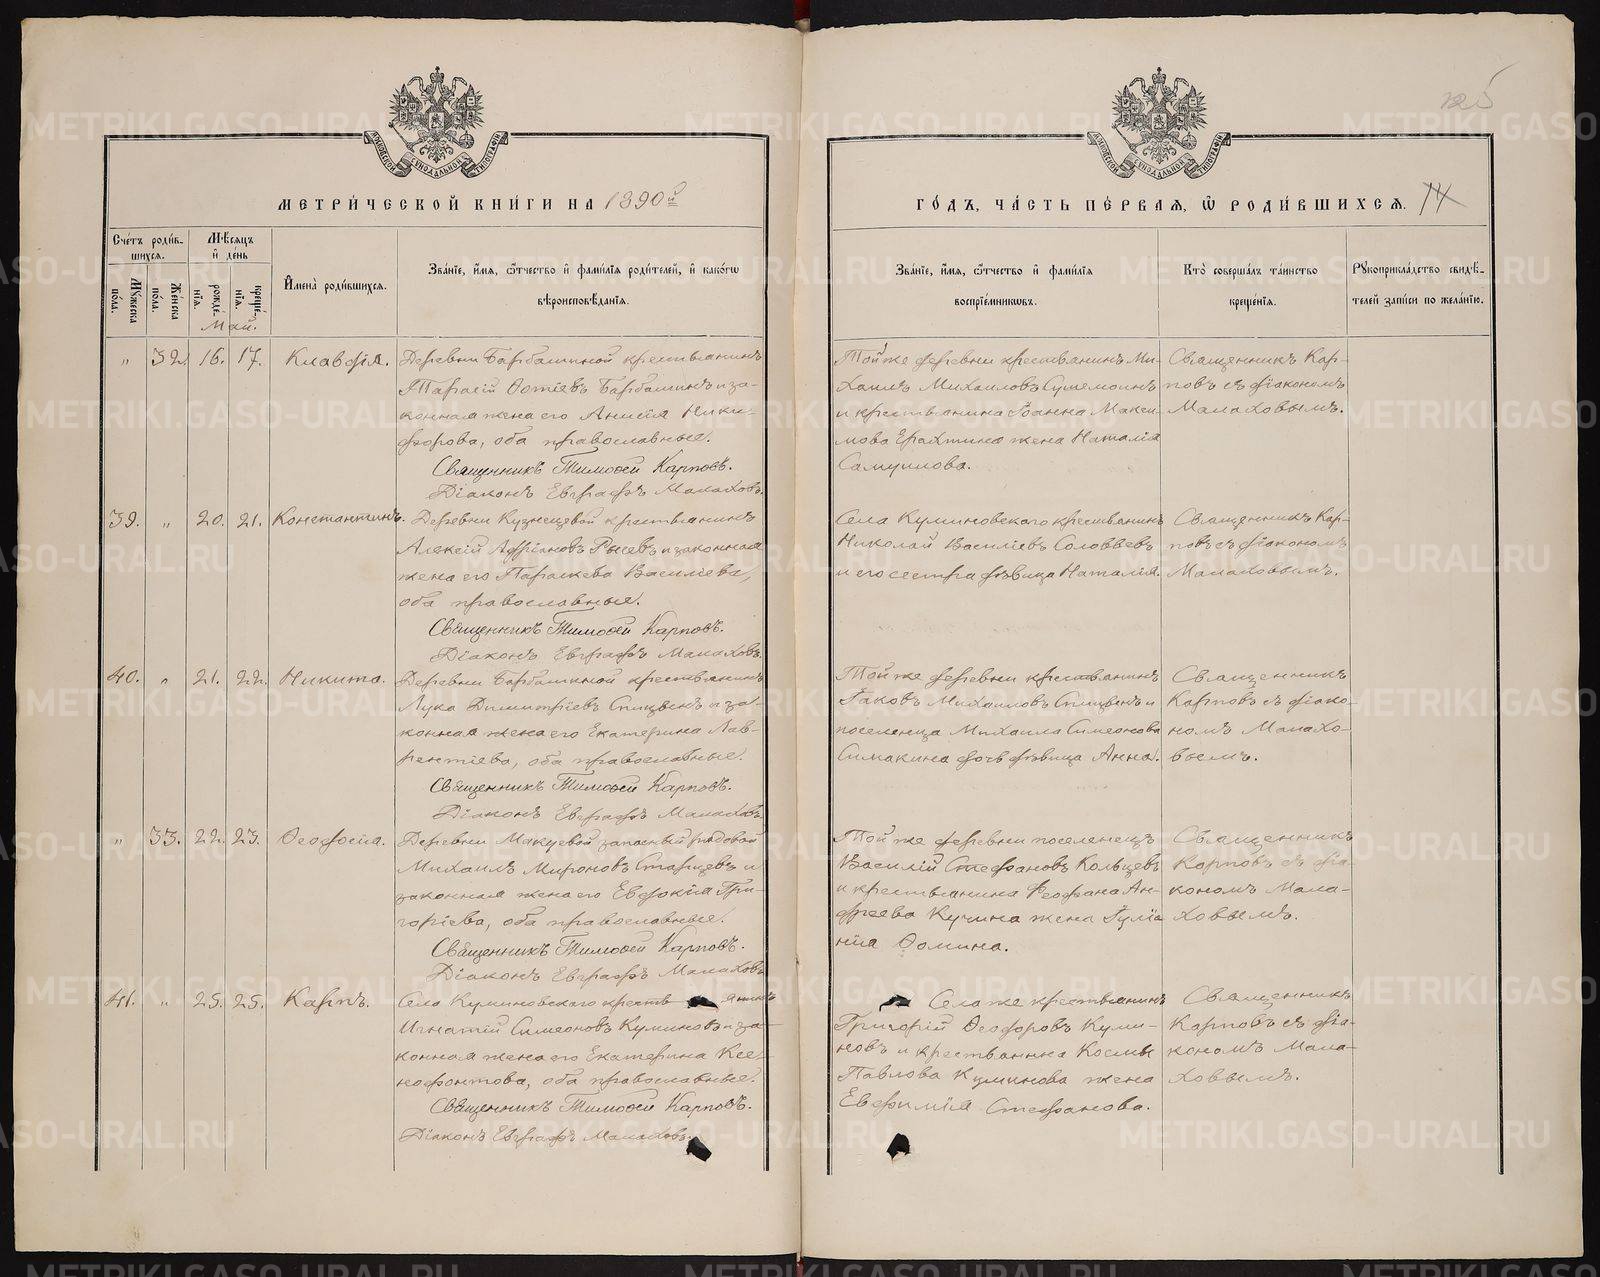 125
МЕТРИ́ЧЕСКОЙ КНИ́ГИ НА 1890й
ГО́ДЪ, ЧА́СТЬ ПЕ́РВАЯ, Ѡ РОДИ́ВШИХСЯ. 74
Сче́тъ роди́в-
шихся.
Му́жеска
по́ла.
Же́нска
по́ла.
Мѣ́сяцъ
и҆ де́нь
рожде́-
нїѧ.
креще́-
нїѧ.
И҆мена̀ роди́вшихся.
Зва́нїе, и҆́мѧ, ѻ҆́тчество и҆ фами́лїѧ роди́телей, и҆ како́гѡ
вѣроисповѣ́данїѧ.
Зва́нїе, и҆́мѧ, ѻ҆́тчество и҆ фами́лїѧ
воспрїе́мникѡвъ.
Кто̀ соверша́лъ та́инство
креще́нїѧ.
Рꙋкоприкла́дство свидѣ́-
телей за́писи по жела́нїю.
Май.
" 32. 16. 17. Клавдія.
Деревни Барбашиной крестьянинъ
Тарасій Фотіевъ Барбашинъ и за-
конная жена его Анисія Ники-
форова, оба православные.
Священникъ Тимоѳей Карповъ.
Діаконъ Евграфъ Малаховъ.
Той же деревни крестьянинъ Ми-
хаилъ Михаиловъ
и крестьянина Іоанна Макси-
мова жена Наталія
Самуилова.
Священникъ Кар-
повъ съ діакономъ
Малаховымъ.
39. " 20. 21. Константинъ.
Деревни Кузнецевой крестьянинъ
Алексій Адріановъ и законная
жена его Параскева Василіева,
оба православные.
Священникъ Тимоѳей Карповъ.
Діаконъ Евграфъ Малаховъ.
Села Куминовскаго крестьянинъ
Николай Василіевъ Соловьевъ
и его сестра дѣвица Наталія.
Священникъ Кар-
повъ съ діакономъ
Малаховымъ.
40. " 21. 22. Никита.
Деревни Барбашиной крестьянинъ
Лука Димитріевъ и за-
конная жена его Екатерина Лав-
рентіева, оба православные.
Священникъ Тимоѳей Карповъ.
Діаконъ Евграфъ Малаховъ.
Той же деревни крестьянинъ
Іаковъ Михаиловъ и
поселенца Михаила Симеонова
Симакина дочь дѣвица Анна.
Священникъ
Карповъ съ діако-
номъ Малахо-
вымъ.
" 33. 22. 23. Ѳеодосія.
Деревни Макуевой запасный рядовой
Михаилъ Мироновъ Старцевъ и
законная жена его Евдокія Гри-
горіева, оба православные.
Священникъ Тимоѳей Карповъ.
Діаконъ Евграфъ Малаховъ
Той же деревни поселенецъ
Василій Стефановъ Кольцевъ
и крестьянина Ѳеофана Ан-
дреева Кучина жена Іуліа
нія Ѳомина.
Священникъ
Карповъ съ діа-
кономъ Мала-
ховымъ.
41. " 25. 25. Карпъ.
Села Куминовскаго кресть янинъ
Игнатій Симеоновъ Куминовъ и за-
конная жена его Екатерина Ксе-
нофонтова, оба православные.
Священникъ Тимоѳей Карповъ.
Діаконъ Евграфъ Малаховъ.
Села же крестьянинъ
Григорій Ѳеодоровъ Куми-
новъ и крестьянина Космы
Павлова Куминова жена
Евфимія Стефанова.
Священникъ
Карповъ съ діа-
кономъ Мала-
ховымъ.
METRIKI.GASO-URAL.RU